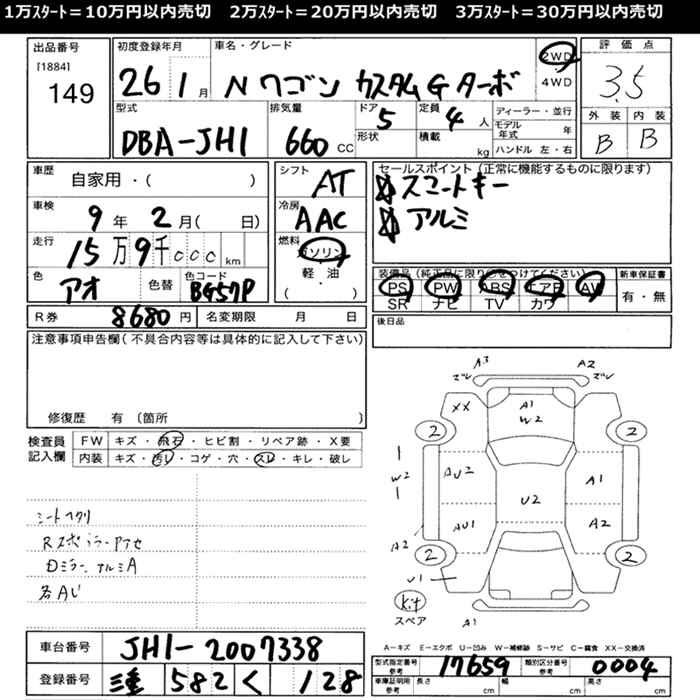 1万ｽﾀｰﾄ＝10万円以内売切　2万ｽﾀｰﾄ＝20万円以内売切　3万ｽﾀｰﾄ＝30万円以内売切
出品番号 [1884] 149
初度登録年月 26 1月
車名・グレード N ワゴン カスタムG ターボ
2WD 4WD
評価点 3.5
型式 DBA-JH1
排気量 660 CC
ドア 5 定員 4 人
形状 積載 kg
ディーラー・並行
モデル年式 年
ハンドル 左・右
外装 内装
B B
車歴 自家用・( )
シフト AT
セールスポイント (正常に機能するものに限ります)
スマートキー
アルミ
車検 9年 2月( 日)
冷房 AAC
走行 15万9千000km
燃料 ガソリン 軽・油 ( )
色 アオ 色替 色コード BG57P
装備品 (純正品に限り○をつけてください)
PS PW ABS エアB AW
SR ナビ TV カワ
新車保証書 有・無
R券 8680円 名変期限 月 日
後日品
注意事項申告欄(不具合内容等は具体的に記入して下さい)
修復歴 有 (箇所 )
検査員記入欄
FW キズ・飛石・ヒビ割・リペア跡・X要
内装 キズ・汚レ・コゲ・穴・スレ・キレ・破レ
シートヘタリ
各AU
A3 A2
XX A1 W2
2 2
W2 AU2 U2 A1
AU1 A2
A2
2 2
U1
Kit
スペア
A1
A－キズ E－エクボ U－凹み W－補修跡 S－サビ C－腐食 XX－交換済
車台番号 JH1-2007338
型式指定番号 参考 17659 類別区分番号 参考 0004
登録番号 三重 582 く 128
車庫証明用 参考 長さ cm 幅 cm 高さ cm